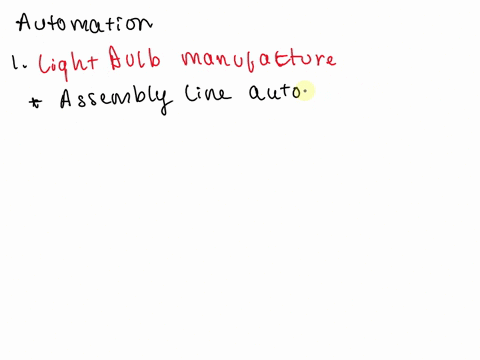 Automation
1. Light Bulb manufacture
* Assembly Line auto